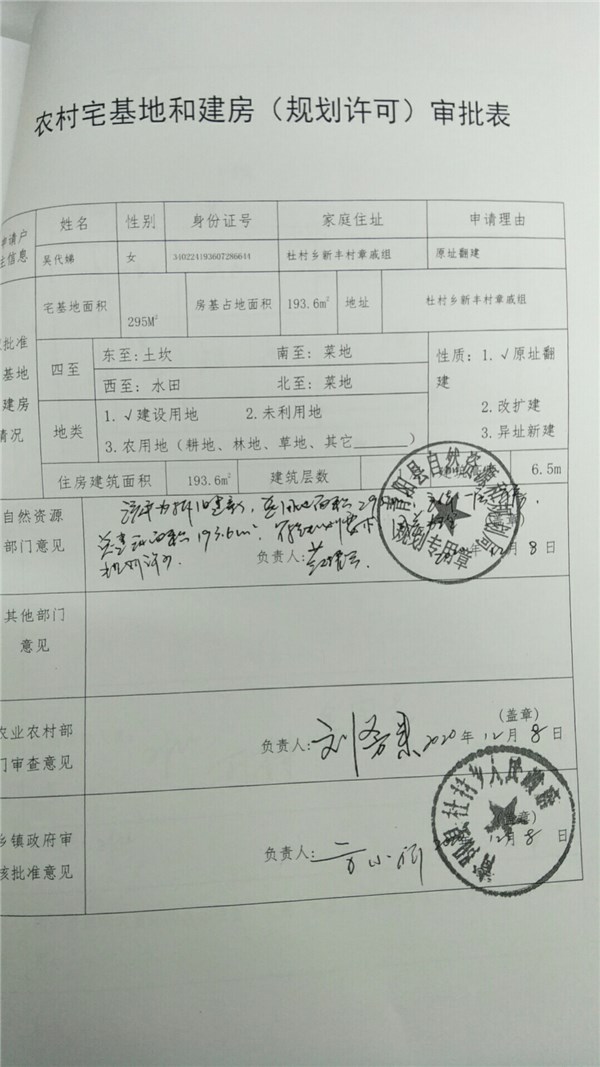 农村宅基地和建房（规划许可）审批表
申请户
主信息
姓名 性别 身份证号 家庭住址 申请理由
吴代娣 女 340224193607286644 杜村乡新丰村章戚组 原址翻建
批准
基地
建房
情况
宅基地面积 295M² 房基占地面积 193.6m² 地址 杜村乡新丰村章戚组
四至 东至:土坎 南至: 菜地
西至: 水田 北至: 菜地
性质: 1.√原址翻
建
2.改扩建
3.异址新建
地类 1.√建设用地 2.未利用地
3.农用地（耕地、林地、草地、其它______）
住房建筑面积 193.6m² 建筑层数 6.5m
自然资源
部门意见
193.6m²
负责人:
月8日
青阳县自然资源和规划局
规划专用章
其他部门
意见
农业农村部
门审查意见
(盖章)
负责人: 2020年12月8日
乡镇政府审
核批准意见
负责人: 12月8日
青阳县杜村乡人民政府